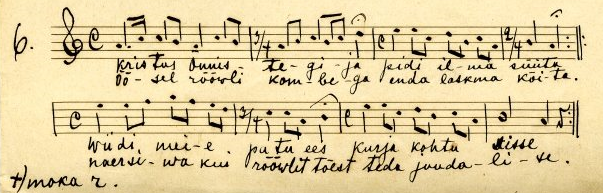 6.
kristus õnnis - te - gi - ja pidi il - ma süüta
öö - sel röövli kom - be - ga enda laskma köi - ta.
wiidi mei - e. patu ees kurja kohtu sisse
naersi - wa kus röövlit tõest teda juuda - li - se.
+) moka r.